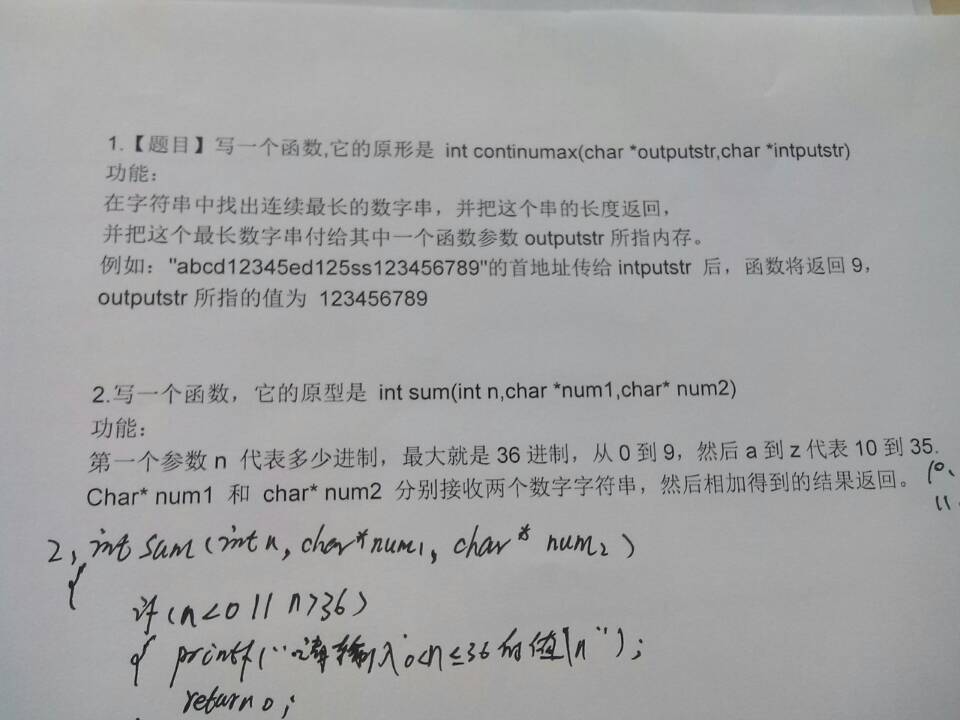 1.【题目】写一个函数,它的原形是 int continumax(char *outputstr,char *intputstr)
功能：
在字符串中找出连续最长的数字串，并把这个串的长度返回，
并把这个最长数字串付给其中一个函数参数 outputstr 所指内存。
例如："abcd12345ed125ss123456789"的首地址传给 intputstr 后，函数将返回 9，
outputstr 所指的值为 123456789
2.写一个函数，它的原型是 int sum(int n,char *num1,char* num2)
功能：
第一个参数 n 代表多少进制，最大就是 36 进制，从 0 到 9，然后 a 到 z 代表 10 到 35.
Char* num1 和 char* num2 分别接收两个数字字符串，然后相加得到的结果返回。
10.
11
2, int sum (int n, char *num1, char * num2)
{
if (n<0 || n>36)
{ printf("请输入0<n≤36的值\n");
return 0;